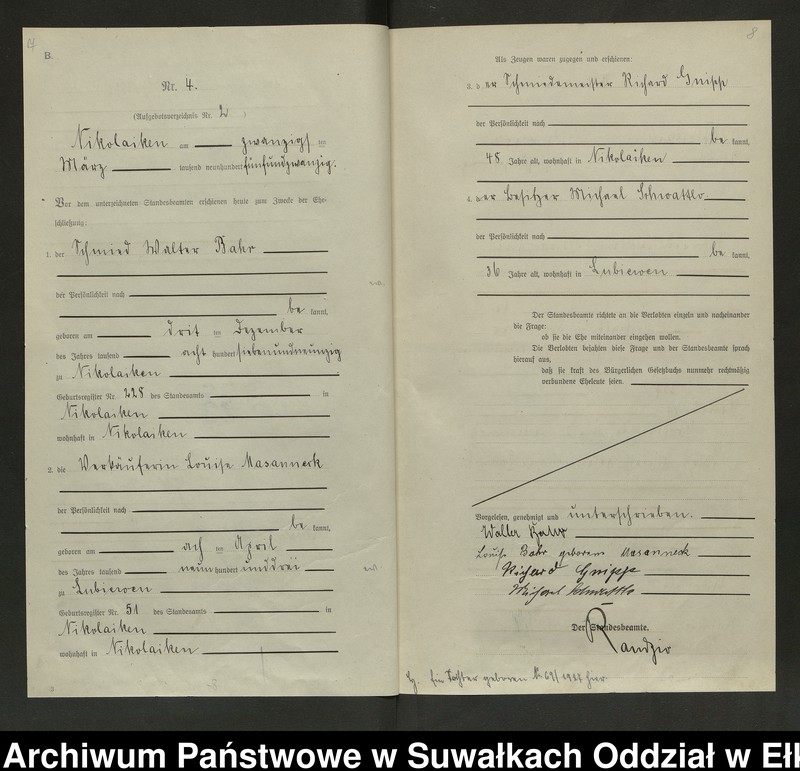 B.
Nr. 4.
(Aufgebotsverzeichnis Nr. 2)
Nikolaiken am zwanzigs ten
März tausend neunhundert fünfundzwanzig.
Vor dem unterzeichneten Standesbeamten erschienen heute zum Zwecke der Ehe-
schließung:
1. der Schmied Walter Bahr
der Persönlichkeit nach
be kannt,
geboren am drit ten Dezember
des Jahres tausend acht hundert siebenundneunzig
zu Nikolaiken
Geburtsregister Nr. 228 des Standesamts in
Nikolaiken
wohnhaft in Nikolaiken
2. die Verkäuferin Louise Masanneck
der Persönlichkeit nach
be kannt,
geboren am ach ten April
des Jahres tausend neun hundert unddrei
zu Lubiewen
Geburtsregister Nr. 51 des Standesamts in
Nikolaiken
wohnhaft in Nikolaiken
8.
Als Zeugen waren zugegen und erschienen:
3. der Schmiedemeister Richard Gnipp
der Persönlichkeit nach
be kannt,
48 Jahre alt, wohnhaft in Nikolaiken
4. der Besitzer Michael
der Persönlichkeit nach
be kannt,
36 Jahre alt, wohnhaft in Lubiewen
Der Standesbeamte richtete an die Verlobten einzeln und nacheinander
die Frage:
ob sie die Ehe miteinander eingehen wollen.
Die Verlobten bejahten diese Frage und der Standesbeamte sprach
hierauf aus,
daß sie kraft des Bürgerlichen Gesetzbuchs nunmehr rechtmäßig
verbundene Eheleute seien.
Vorgelesen, genehmigt und unterschrieben.
Walter Bahr
Louise Bahr geborene Masanneck
Richard
Michael
Der Standesbeamte.
Randzio
Eine Tochter geboren hier
Archiwum Państwowe w Suwałkach Oddział w Ełk